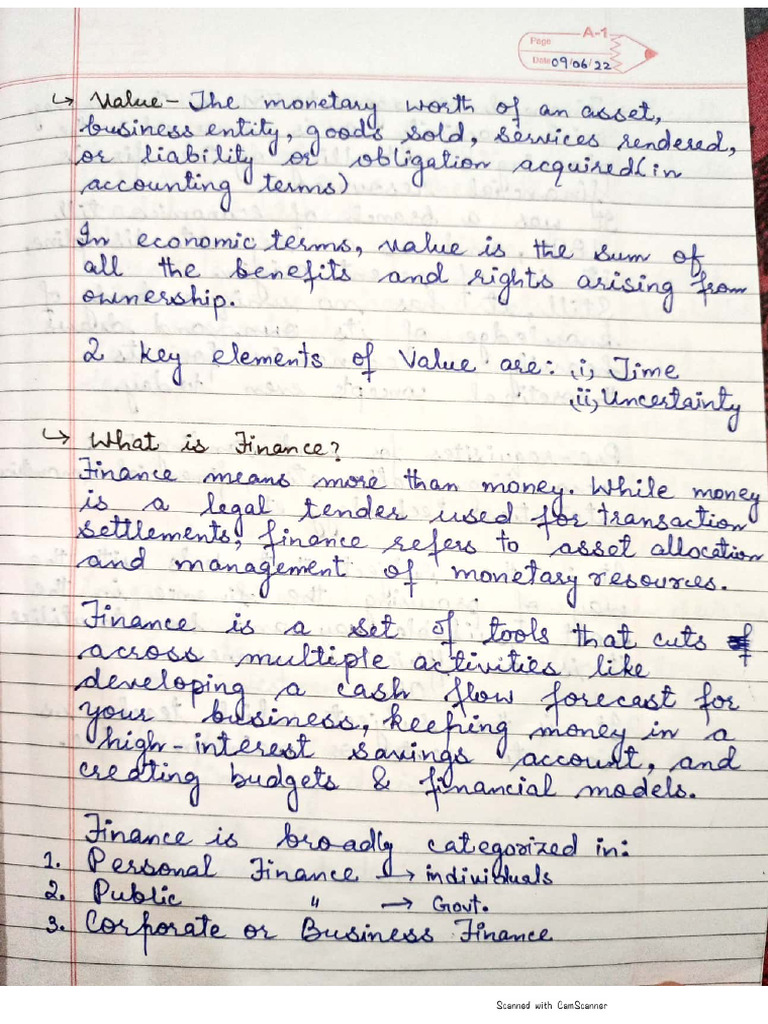 Page A-1
Date 09/06/22
↳ Value - The monetary worth of an asset,
business entity, goods sold, services rendered,
or liability or obligation acquired(in
accounting terms)
In economic terms, value is the sum of
all the benefits and rights arising from
ownership.
2 key elements of Value are: (i) Time
(ii) Uncertainty
↳ What is Finance?
Finance means more than money. While money
is a legal tender used for transaction
settlements, finance refers to asset allocation
and management of monetary resources.
Finance is a set of tools that cuts
across multiple activities like
developing a cash flow forecast for
your business, keeping money in a
high-interest savings account, and
creating budgets & financial models.
Finance is broadly categorized in:
1. Personal Finance → individuals
2. Public " → Govt.
3. Corporate or Business Finance
Scanned with CamScanner